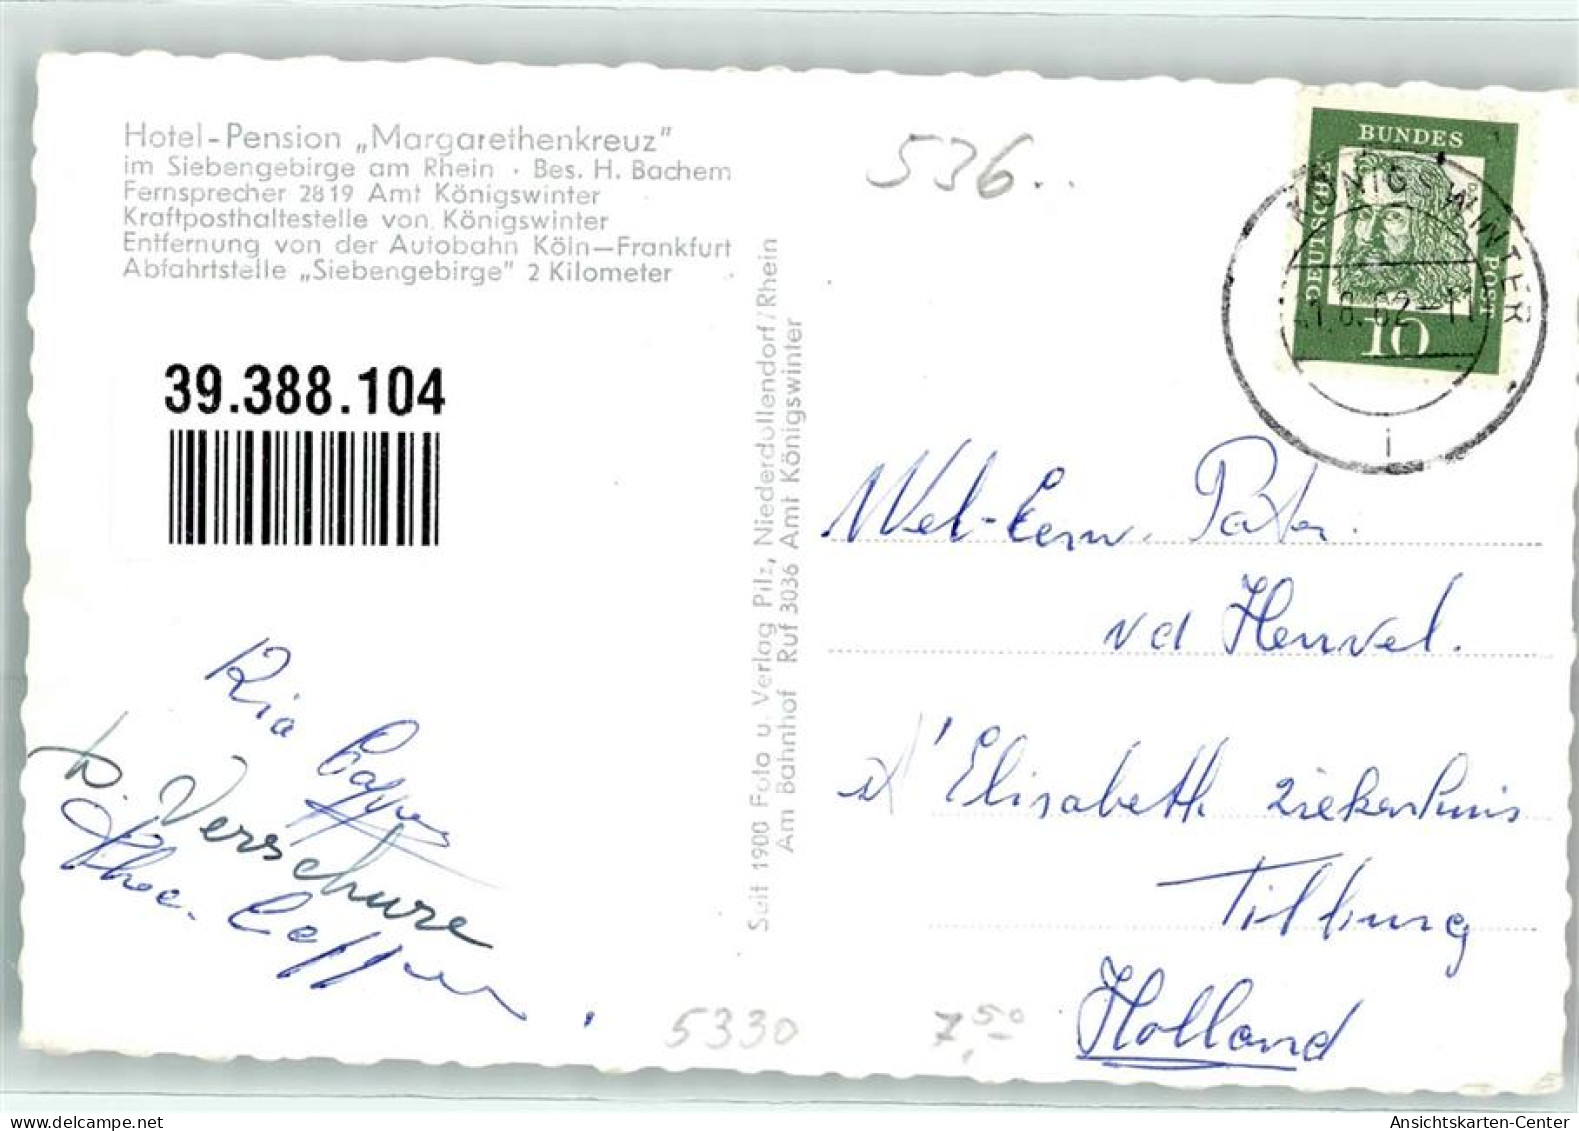 Hotel-Pension „Margarethenkreuz"
im Siebengebirge am Rhein · Bes. H. Bachem
Fernsprecher 2819 Amt Königswinter
Kraftposthaltestelle von Königswinter
Entfernung von der Autobahn Köln—Frankfurt
Abfahrtstelle „Siebengebirge" 2 Kilometer
39.388.104
Ria
D. Verschure
5330
Seit 1900 Foto u. Verlag Pilz, Niederdollendorf/Rhein
Am Bahnhof Ruf 3036 Amt Königswinter
536..
DEUTSCHE BUNDES POST
10
KÖNIGSWINTER
1.8.62-11
i
Wel-Eerw. Pater.
vd Heuvel.
St Elisabeth ziekenhuis
Tilburg
Holland
7,50
Ansichtskarten-Center